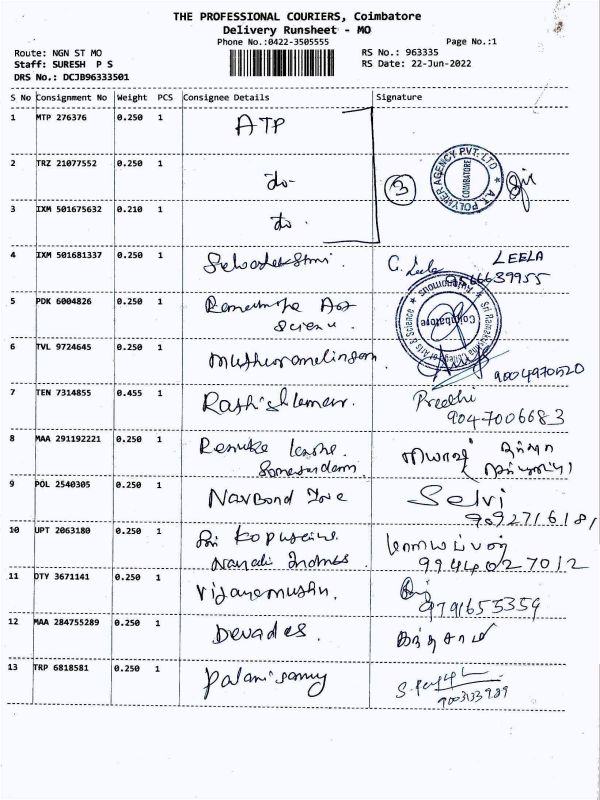 THE PROFESSIONAL COURIERS, Coimbatore
Delivery Runsheet - MO
Phone No.:0422-3505555
Page No.:1
Route: NGN ST MO
RS No.: 963335
Staff: SURESH P S
RS Date: 22-Jun-2022
DRS No.: DCJB96333501
S No Consignment No Weight PCS Consignee Details Signature
1 MTP 276376 0.250 1 ATP
2 TRZ 21077552 0.250 1 do-
A.T. POLYMER AGENCY PVT. LTD
COIMBATORE
3
3 IXM 501675632 0.210 1 do.
4 IXM 501681337 0.250 1 C. Leela LEELA
9566639955
5 PDK 6004826 0.250 1
Science.
Sri Ramakrishna College of Arts & Science
Autonomous
Coimbatore
6 TVL 9724645 0.250 1 Muthuramalingam
9004970520
7 TEN 7314855 0.455 1 Preethi
9047006683
8 MAA 291192221 0.250 1
Somasundaram
9 POL 2540305 0.250 1 Navbond Selvi
9092716181
10 UPT 2063180 0.250 1 Sri
9944027012
11 DTY 3671141 0.250 1 Vijayamuthu
9791655359
12 MAA 284755289 0.250 1 Devades.
13 TRP 6818581 0.250 1 Palanisamy